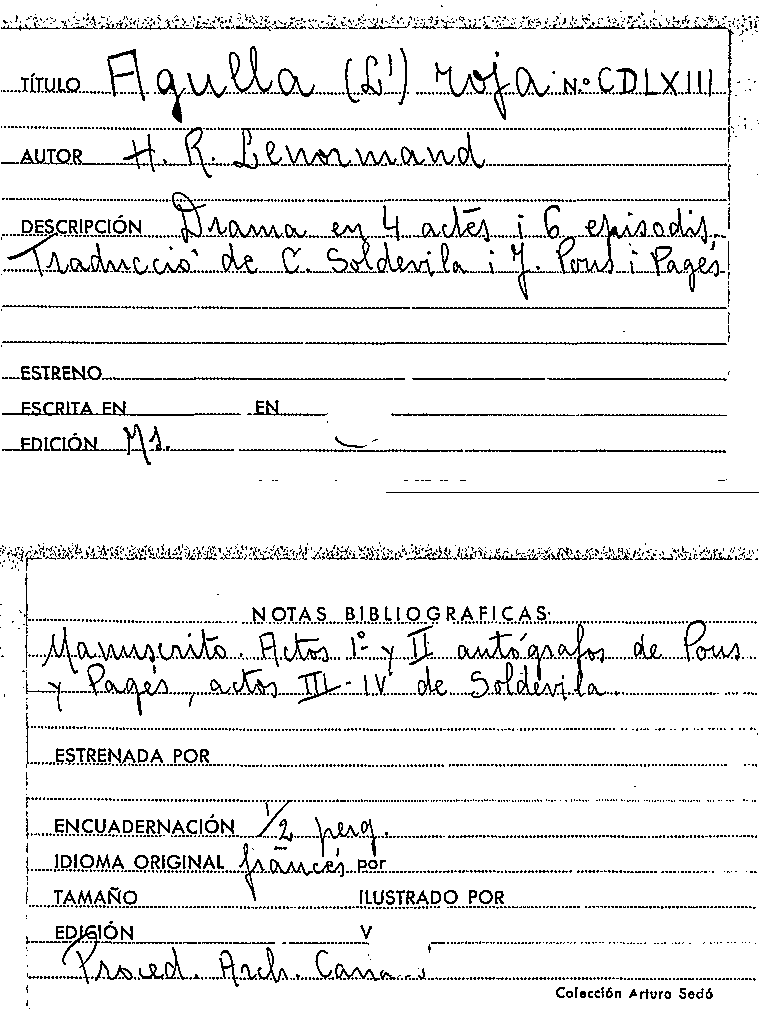 TÍTULO Agulla (L') roja N.º CDLXIII
AUTOR H. R. Lenormand
DESCRIPCIÓN Drama en 4 actes i 6 episodis.
Traducció de C. Soldevila i J. Pous i Pagés
ESTRENO
ESCRITA EN EN
EDICIÓN Ms.
NOTAS BIBLIOGRAFICAS
Manuscrito. Actos 1º y II autógrafos de Pous
y Pagés, actos III-IV de Soldevila.
ESTRENADA POR
ENCUADERNACIÓN 1/2 perg.
IDIOMA ORIGINAL francés por
TAMAÑO ILUSTRADO POR
EDICIÓN V
Proced. Arch.
Colección Arturo Sedó